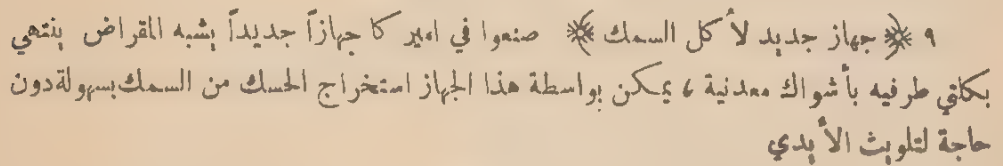 ٩ ﴿ جهاز جديد لأكل السمك ﴾ صنعوا في اميركا جهازاً جديداً يشبه المقراض ينتهي
بكلتي طرفيه بأشواك معدنية ، يمكن بواسطة هذا الجهاز استخراج الحسك من السمك بسهولة دون
حاجة لتلويث الأيدي